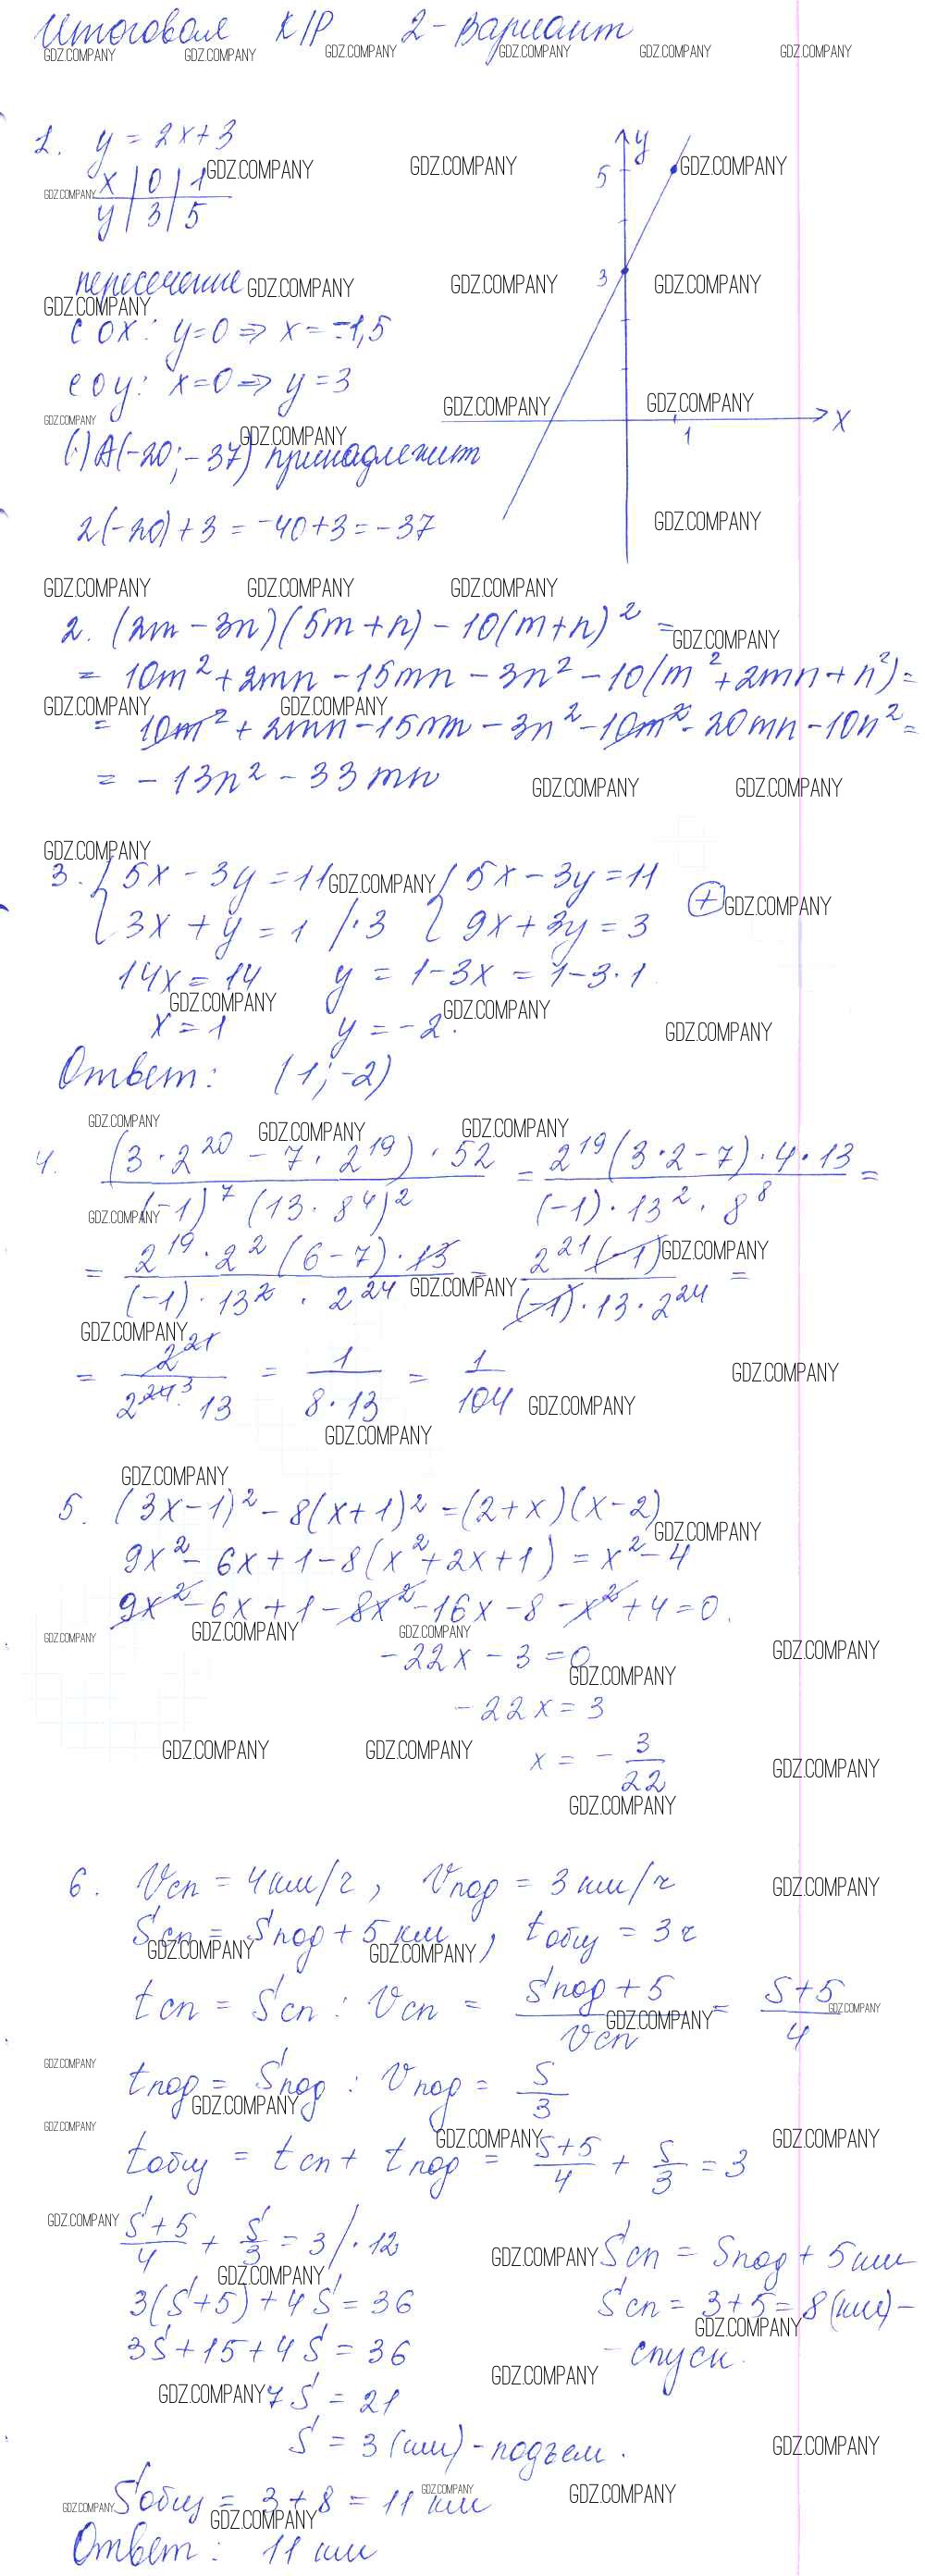 Итоговая К/Р 2-вариант
1. y = 2x+3
x | 0 | 1
y | 3 | 5
y
5
3
x
1
пересечение
с ox: y=0 ⇒ x = -1,5
с oy: x=0 ⇒ y = 3
(·) A(-20; -37) принадлежит
2(-20)+3 = -40+3 = -37
2. (2m - 3n)(5m+n) - 10(m+n)² =
= 10m² + 2mn - 15mn - 3n² - 10(m² + 2mn + n²) =
= 10m² + 2mn - 15mn - 3n² - 10m² - 20mn - 10n² =
= - 13n² - 33mn
3. { 5x - 3y = 11 { 5x - 3y = 11
{ 3x + y = 1 /·3 { 9x + 3y = 3 (+)
14x = 14 y = 1-3x = 1-3·1
x = 1 y = -2.
Ответ: (1; -2)
4. (3·2²⁰ - 7·2¹⁹)·52 / (-1)⁷(13·8⁴)² = 2¹⁹(3·2-7)·4·13 / (-1)·13²·8⁸ =
= 2¹⁹·2²(6-7)·13 / (-1)·13²·2²⁴ = 2²¹(-1) / (-1)·13·2²⁴ =
= 2²¹ / 2²⁴ ³·13 = 1 / 8·13 = 1 / 104
5. (3x-1)² - 8(x+1)² = (2+x)(x-2)
9x² - 6x + 1 - 8(x² + 2x + 1) = x² - 4
9x² - 6x + 1 - 8x² - 16x - 8 - x² + 4 = 0.
-22x - 3 = 0
-22x = 3
x = - 3/22
6. Vсп = 4 км/ч, Vпод = 3 км/ч
Sсп = Sпод + 5 км, tобщ = 3 ч
tсп = Sсп : Vсп = Sпод + 5 / Vсп = S+5 / 4
tпод = Sпод : Vпод = S/3
tобщ = tсп + tпод = S+5 / 4 + S/3 = 3
S+5 / 4 + S/3 = 3 /·12
3(S+5) + 4S = 36
3S + 15 + 4S = 36
7S = 21
S = 3 (км) - подъем.
Sсп = Sпод + 5 км
Sсп = 3+5 = 8 (км) -
- спуск.
Sобщ = 3 + 8 = 11 км
Ответ: 11 км
GDZ.COMPANY